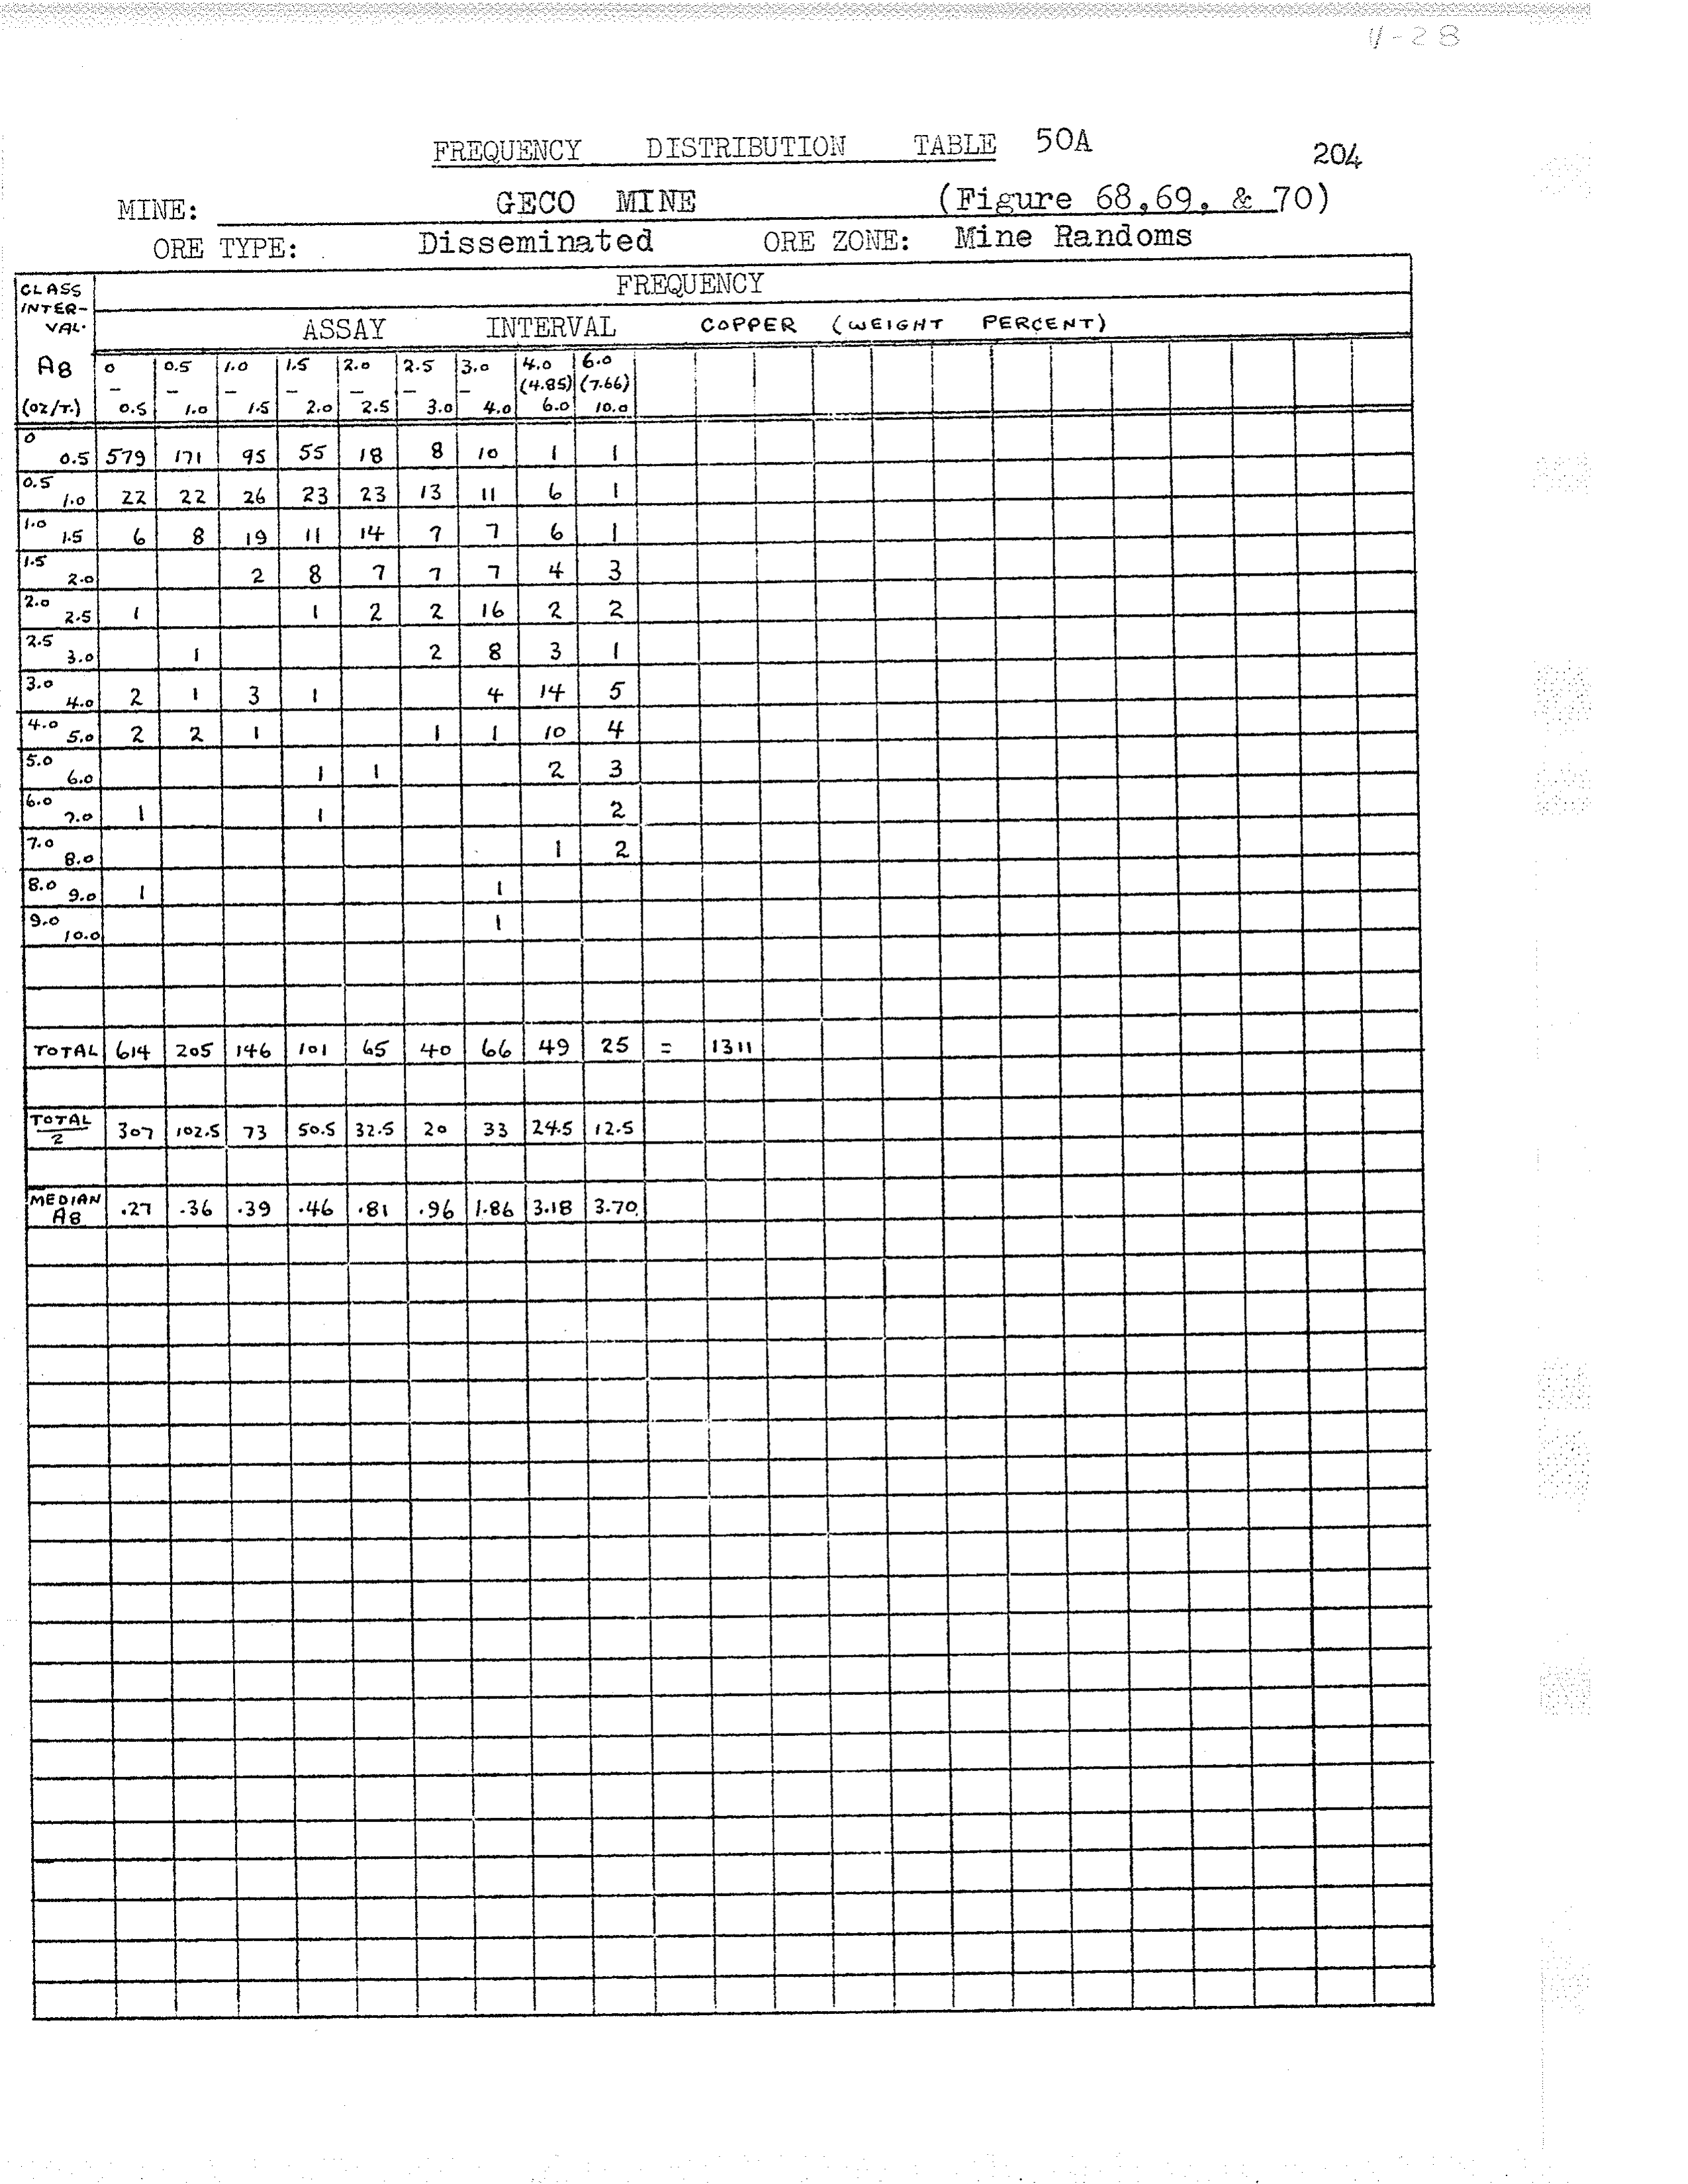 4-28
FREQUENCY DISTRIBUTION TABLE 50A
204
MINE: GECO MINE (Figure 68,69, & 70)
ORE TYPE: Disseminated ORE ZONE: Mine Randoms
CLASS INTER-VAL. FREQUENCY
ASSAY INTERVAL COPPER (WEIGHT PERCENT)
Ag 0 0.5 1.0 1.5 2.0 2.5 3.0 4.0 6.0
– – – – – – – (4.85) (7.66)
(oz/T.) 0.5 1.0 1.5 2.0 2.5 3.0 4.0 6.0 10.0
0 0.5 579 171 95 55 18 8 10 1 1
0.5 1.0 22 22 26 23 23 13 11 6 1
1.0 1.5 6 8 19 11 14 7 7 6 1
1.5 2.0 2 8 7 7 7 4 3
2.0 2.5 1 1 2 2 16 2 2
2.5 3.0 1 2 8 3 1
3.0 4.0 2 1 3 1 4 14 5
4.0 5.0 2 2 1 1 1 10 4
5.0 6.0 1 1 2 3
6.0 7.0 1 1 2
7.0 8.0 1 2
8.0 9.0 1 1
9.0 10.0 1
TOTAL 614 205 146 101 65 40 66 49 25 = 1311
TOTAL/2 307 102.5 73 50.5 32.5 20 33 24.5 12.5
MEDIAN Ag .27 .36 .39 .46 .81 .96 1.86 3.18 3.70